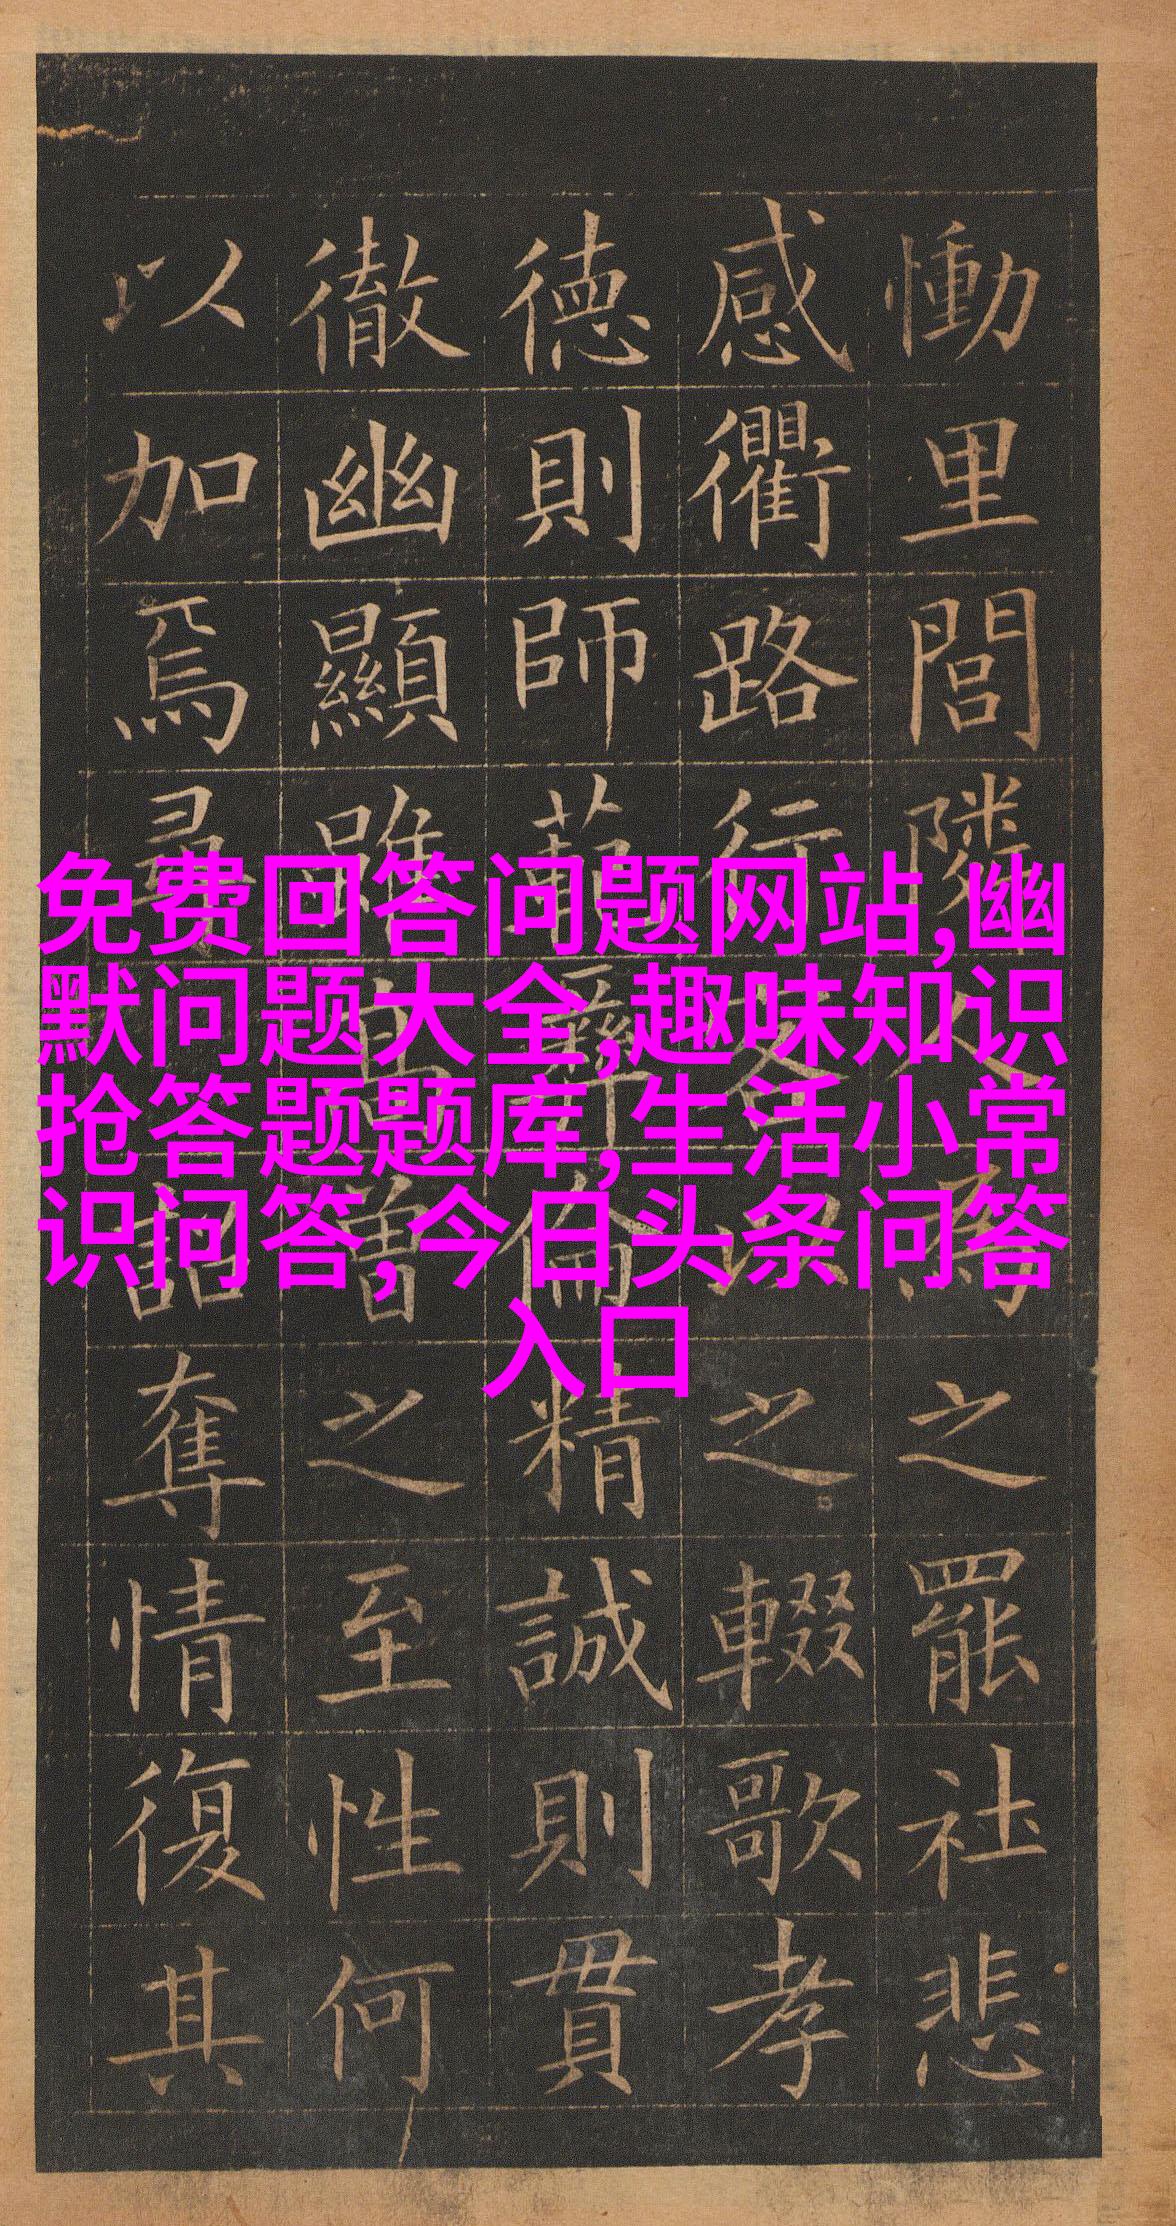 慟里閭隣人為之罷社悲
感衢路行客以之輟歌孝
德則師範彝倫精誠則貫
徹幽顯雖高曾之至性何
以加焉尋詔奪情復其
免费回答问题网站,幽
默问题大全,趣味知识
抢答题题库,生活小常
识问答,今日头条问答
入口